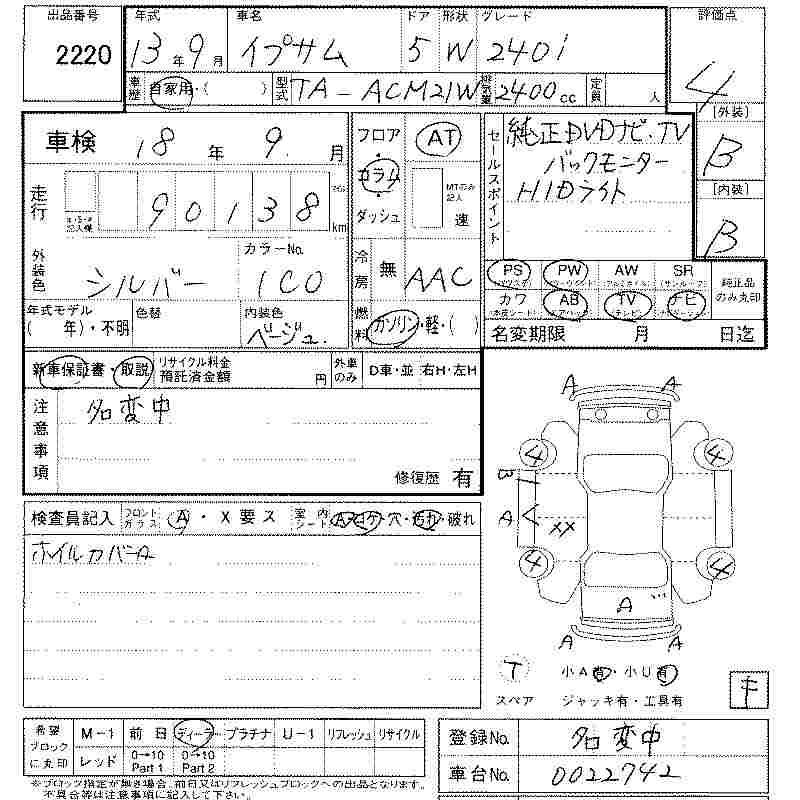 出品番号 2220
年式 13年9月 車名 イプサム ドア 5 形状 W グレード 240i 評価点 4
車歴 自家用・( ) 型式 TA-ACM21W 排気量 2400cc 定員 人
車検 18年9.月
フロア コラム ダッシュ AT MTのみ記入 速
セールスポイント 純正DVDナビ・TV
バックモニター
HIDライト
[外装] B
[内装] B
走行 90138 km
外装色 シルバー カラーNo. 1C0
冷房 無 AAC
燃料 ガソリン・軽・( )
年式モデル ( 年)・不明 色替 内装色 ベージュ
PS PW AW SR
カワ AB TV ナビ
純正品のみ丸印
名変期限 月 日迄
新車保証書・取説 リサイクル料金預託済金額 円 外車のみ D車・並 右H・左H
注意事項 名変中
修復歴 有
検査員記入 フロントガラス A・X要ス 室内シート コゲ・穴・汚れ・破れ
ホイルカバーA
A A
4 4
B
A
XX
4 4
A
A A
T 小A有・小U有
スペア ジャッキ有・工具有
希望ブロックに丸印 M-1 前日 ディーラー プラチナ U-1 リフレッシュ リサイクル
レッド 0→10 Part 1 0→10 Part 2
※ブロック指定が無き場合、前日又はリフレッシュブロックへの出品となります。
不具合等は注意事項に記入して下さい。
登録No. 名変中
車台No. 0022742